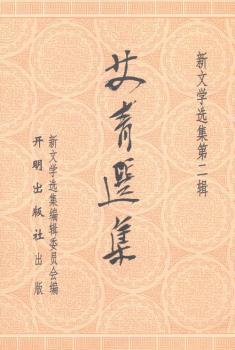 新文学选集第二辑
艾青選集
新文学选集编辑委员会编
开明出版社出版